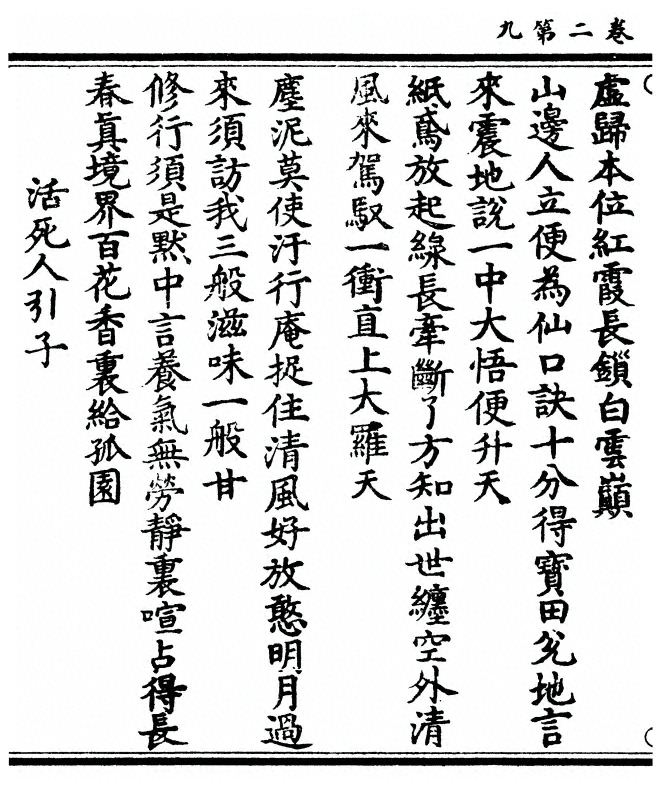 卷二第九
虛歸本位紅霞長鎖白雲巔
山邊人立便為仙口訣十分得寶田兊地言
來震地說一中大悟便升天
紙鳶放起線長牽斷了方知出世纏空外清
風來駕馭一衝直上大羅天
塵泥莫使汙行庵捉住清風好放憨明月過
來須訪我三般滋味一般甘
修行須是默中言養氣無勞靜裏喧占得長
春真境界百花香裏給孤園
活死人引子